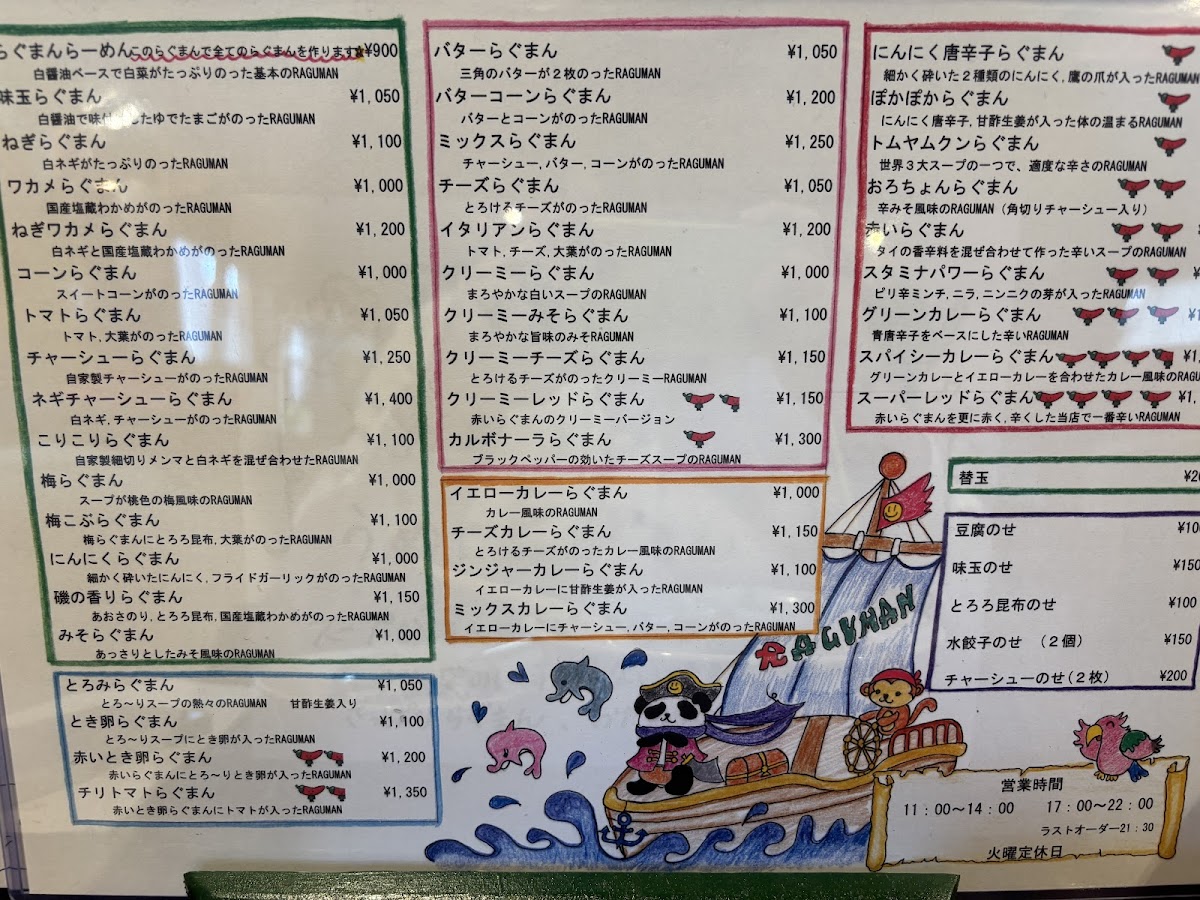 らぐまんらーめん このらぐまんで全てのらぐまんを作ります ¥900
白醤油ベースで白菜がたっぷりのった基本のRAGUMAN
味玉らぐまん ¥1,050
白醤油で味付 したゆでたまごがのったRAGUMAN
ねぎらぐまん ¥1,100
白ネギがたっぷりのったRAGUMAN
ワカメらぐまん ¥1,000
国産塩蔵わかめがのったRAGUMAN
ねぎワカメらぐまん ¥1,200
白ネギと国産塩蔵わかめがのったRAGUMAN
コーンらぐまん ¥1,000
スイートコーンがのったRAGUMAN
トマトらぐまん ¥1,050
トマト,大葉がのったRAGUMAN
チャーシューらぐまん ¥1,250
自家製チャーシューがのったRAGUMAN
ネギチャーシューらぐまん ¥1,400
白ネギ,チャーシューがのったRAGUMAN
こりこりらぐまん ¥1,100
自家製細切りメンマと白ネギを混ぜ合わせたRAGUMAN
梅らぐまん ¥1,000
スープが桃色の梅風味のRAGUMAN
梅こぶらぐまん ¥1,100
梅らぐまんにとろろ昆布,大葉がのったRAGUMAN
にんにくらぐまん ¥1,000
細かく砕いたにんにく,フライドガーリックがのったRAGUMAN
磯の香りらぐまん ¥1,150
あおさのり,とろろ昆布,国産塩蔵わかめがのったRAGUMAN
みそらぐまん ¥1,000
あっさりとしたみそ風味のRAGUMAN
とろみらぐまん ¥1,050
とろ〜りスープの熱々のRAGUMAN 甘酢生姜入り
とき卵らぐまん ¥1,100
とろ〜りスープにとき卵が入ったRAGUMAN
赤いとき卵らぐまん ¥1,200
赤いらぐまんにとろ〜りとき卵が入ったRAGUMAN
チリトマトらぐまん ¥1,350
赤いとき卵らぐまんにトマトが入ったRAGUMAN
バターらぐまん ¥1,050
三角のバターが2枚のったRAGUMAN
バターコーンらぐまん ¥1,200
バターとコーンがのったRAGUMAN
ミックスらぐまん ¥1,250
チャーシュー,バター,コーンがのったRAGUMAN
チーズらぐまん ¥1,050
とろけるチーズがのったRAGUMAN
イタリアンらぐまん ¥1,200
トマト,チーズ,大葉がのったRAGUMAN
クリーミーらぐまん ¥1,000
まろやかな白いスープのRAGUMAN
クリーミーみそらぐまん ¥1,100
まろやかな旨味のみそRAGUMAN
クリーミーチーズらぐまん ¥1,150
とろけるチーズがのったクリーミーRAGUMAN
クリーミーレッドらぐまん ¥1,150
赤いらぐまんのクリーミーバージョン
カルボナーラらぐまん ¥1,300
ブラックペッパーの効いたチーズスープのRAGUMAN
イエローカレーらぐまん ¥1,000
カレー風味のRAGUMAN
チーズカレーらぐまん ¥1,150
とろけるチーズがのったカレー風味のRAGUMAN
ジンジャーカレーらぐまん ¥1,100
イエローカレーに甘酢生姜が入ったRAGUMAN
ミックスカレーらぐまん ¥1,300
イエローカレーにチャーシュー,バター,コーンがのったRAGUMAN
にんにく唐辛子らぐまん
細かく砕いた2種類のにんにく,鷹の爪が入ったRAGUMAN
ぽかぽからぐまん
にんにく唐辛子,甘酢生姜が入った体の温まるRAGUMAN
トムヤムクンらぐまん
世界3大スープの一つで、適度な辛さのRAGUMAN
おろちょんらぐまん
辛みそ風味のRAGUMAN（角切りチャーシュー入り）
赤いらぐまん
タイの香辛料を混ぜ合わせて作った辛いスープのRAGUMAN
スタミナパワーらぐまん
ピリ辛ミンチ,ニラ,ニンニクの芽が入ったRAGUMAN
グリーンカレーらぐまん
青唐辛子をベースにした辛いRAGUMAN
スパイシーカレーらぐまん ¥1,
グリーンカレーとイエローカレーを合わせたカレー風味のRAGU
スーパーレッドらぐまん ¥1,
赤いらぐまんを更に赤く,辛くした当店で一番辛いRAGUMAN
替玉
豆腐のせ ¥100
味玉のせ ¥150
とろろ昆布のせ ¥100
水餃子のせ （2個） ¥150
チャーシューのせ(2枚) ¥200
RAGUMAN
営業時間
11：00〜14：00 17：00〜22：00
ラストオーダー21：30
火曜定休日